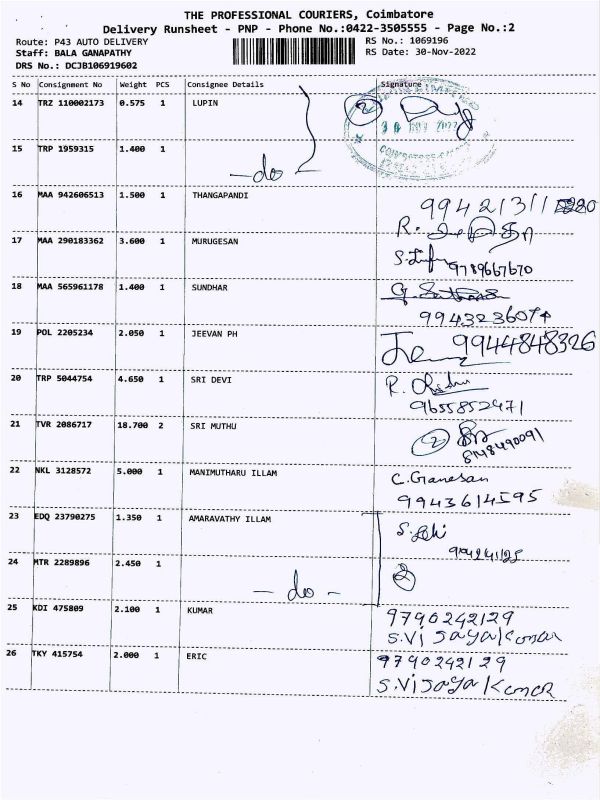 THE PROFESSIONAL COURIERS, Coimbatore
Delivery Runsheet - PNP - Phone No.:0422-3505555 - Page No.:2
Route: P43 AUTO DELIVERY RS No.: 1069196
Staff: BALA GANAPATHY RS Date: 30-Nov-2022
DRS No.: DCJB106919602
S No Consignment No Weight PCS Consignee Details Signature
14 TRZ 110002173 0.575 1 LUPIN 2
15 TRP 1959315 1.400 1
-do-
16 MAA 942606513 1.500 1 THANGAPANDI
17 MAA 290183362 3.600 1 MURUGESAN
9789667670
18 MAA 565961178 1.400 1 SUNDHAR
9943236074
19 POL 2205234 2.050 1 JEEVAN PH 9944848326
20 TRP 5044754 4.650 1 SRI DEVI R.
9655852471
21 TVR 2086717 18.700 2 SRI MUTHU 2
8148490091
22 NKL 3128572 5.000 1 MANIMUTHARU ILLAM C. Ganesan
9943614595
23 EDQ 23790275 1.350 1 AMARAVATHY ILLAM
24 MTR 2289896 2.450 1 2
-do-
25 KDI 475809 2.100 1 KUMAR 9790242129
S.Vijayakumar
26 TKY 415754 2.000 1 ERIC 9790242129
S.Vijayakumar